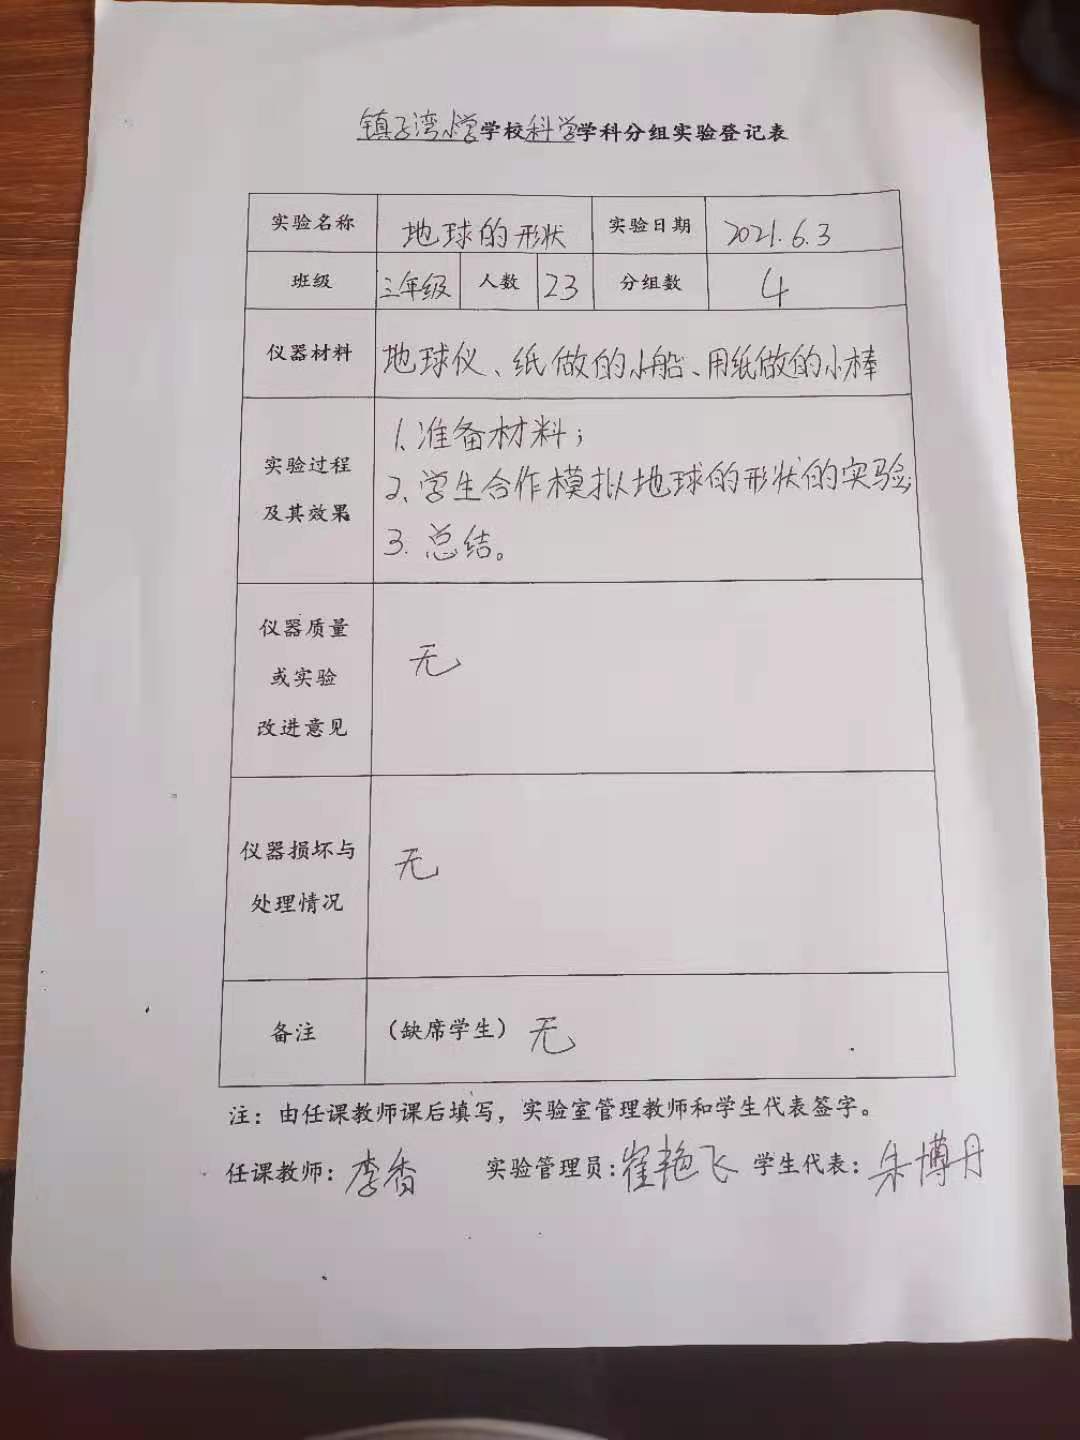 镇子湾小学学校科学学科分组实验登记表
实验名称 地球的形状 实验日期 2021.6.3
班级 三年级 人数 23 分组数 4
仪器材料 地球仪、纸做的小船、用纸做的小棒
实验过程
及其效果
1.准备材料;
2、学生合作模拟地球的形状的实验;
3.总结。
仪器质量
或实验
改进意见
无
仪器损坏与
处理情况
无
备注 (缺席学生) 无
注:由任课教师课后填写,实验室管理教师和学生代表签字。
任课教师:李香 实验管理员:崔艳飞 学生代表:朱博丹